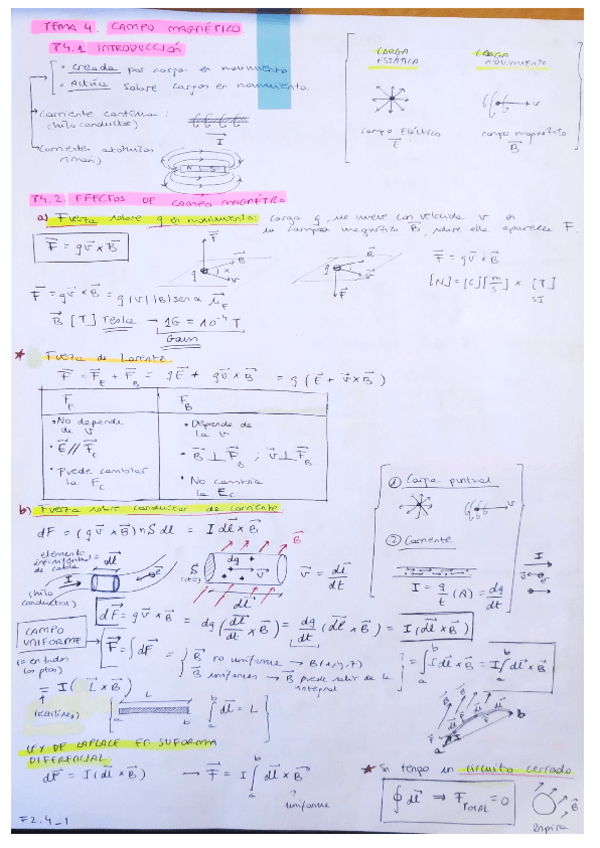 TEMA 4. CAMPO MAGNÉTICO
T4.1. INTRODUCCIÓN
• Creado por cargas en movimiento
• Actúa sobre cargas en movimiento.
Corriente continua:
(hilo conductor)
I
Corrientes atómicas
(imán)
N S
CARGA ESTÁTICA
campo Eléctrico
E⃗
CARGA MOVIMIENTO
v
campo magnético
B⃗
T4.2. EFECTOS DE CAMPO MAGNÉTICO
a) Fuerza sobre q en movimiento: carga q, se mueve con velocidad v en
un campo magnético B⃗, sobre ella aparece F.
F⃗ = qv⃗ × B⃗
F⃗ = qv⃗ × B⃗
[N] = [C][m/s] × [T]
SI
F⃗ = qv⃗ × B⃗ = q|v||B| sen α u⃗_F
B⃗ [T] Tesla → 1G = 10⁻⁴ T
Gauss
★ Fuerza de Lorentz
F⃗ = F⃗_E + F⃗_B = qE⃗ + qv⃗ × B⃗ = q(E⃗ + v⃗ × B⃗)
F_E
• No depende de v
• E⃗ // F⃗_C
• Puede cambiar la E_C
F_B
• Depende de la v
• B⃗ ⊥ F⃗_B ; v⃗ ⊥ F⃗_B
• No cambia la E_C
b) Fuerza sobre conductor de corriente
dF = (qv⃗ × B⃗) n S dl = I dl⃗ × B⃗
elemento infinitesimal de cable = dl⃗
I
(hilo conductor)
S
dq
v⃗
dl⃗
B⃗
v⃗ = dl⃗/dt
① Carga puntual
② Corriente
I = q/t (A) = dq/dt
dF⃗ = qv⃗ × B⃗ = dq (dl⃗/dt × B⃗) = dq/dt (dl⃗ × B⃗) = I(dl⃗ × B⃗)
CAMPO UNIFORME
(= en todos los ptos)
F⃗ = ∫dF⃗ =
B⃗ no uniforme → B(x,y,z)
B⃗ uniforme → B⃗ puede salir de la integral
= ∫ₐᵇ I dl⃗ × B⃗ = I ∫ₐᵇ dl⃗ × B⃗
= I(L⃗ × B⃗)
(rectilíneo)
L
a b
∫ₐᵇ dl⃗ = L
LEY DE LAPLACE EN SU FORMA DIFERENCIAL
dF⃗ = I(dl⃗ × B⃗) → F⃗ = I ∫ₐᵇ dl⃗ × B⃗
uniforme
★ Si tengo un circuito cerrado
∮ dl⃗ ⇒ F_TOTAL = 0
B⃗
Espira
F2.4_1